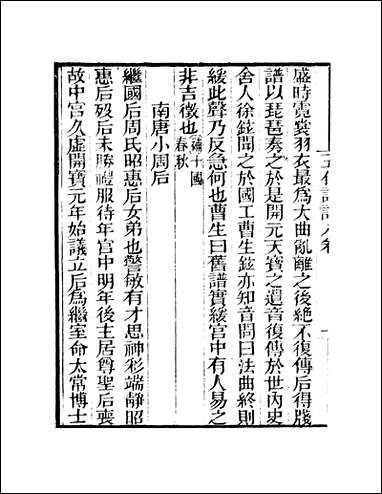 盛時霓裳羽衣最為大曲亂離之後絶不復傳后得殘
譜以琵琶奏之於是開元天寶之遺音復傳於世內史
舍人徐鉉聞之於國工曹生鉉亦知音問曰法曲終則
緩此聲乃反急何也曹生曰舊譜實緩宮中有人易之
非吉徵也十國春秋
南唐小周后
繼國后周氏昭惠后女弟也警敏有才思神彩端靜昭
惠后歿后未勝禮服待年宮中明年後主居尊聖后喪
故中宮久虛開寶元年始議立后為繼室命太常博士